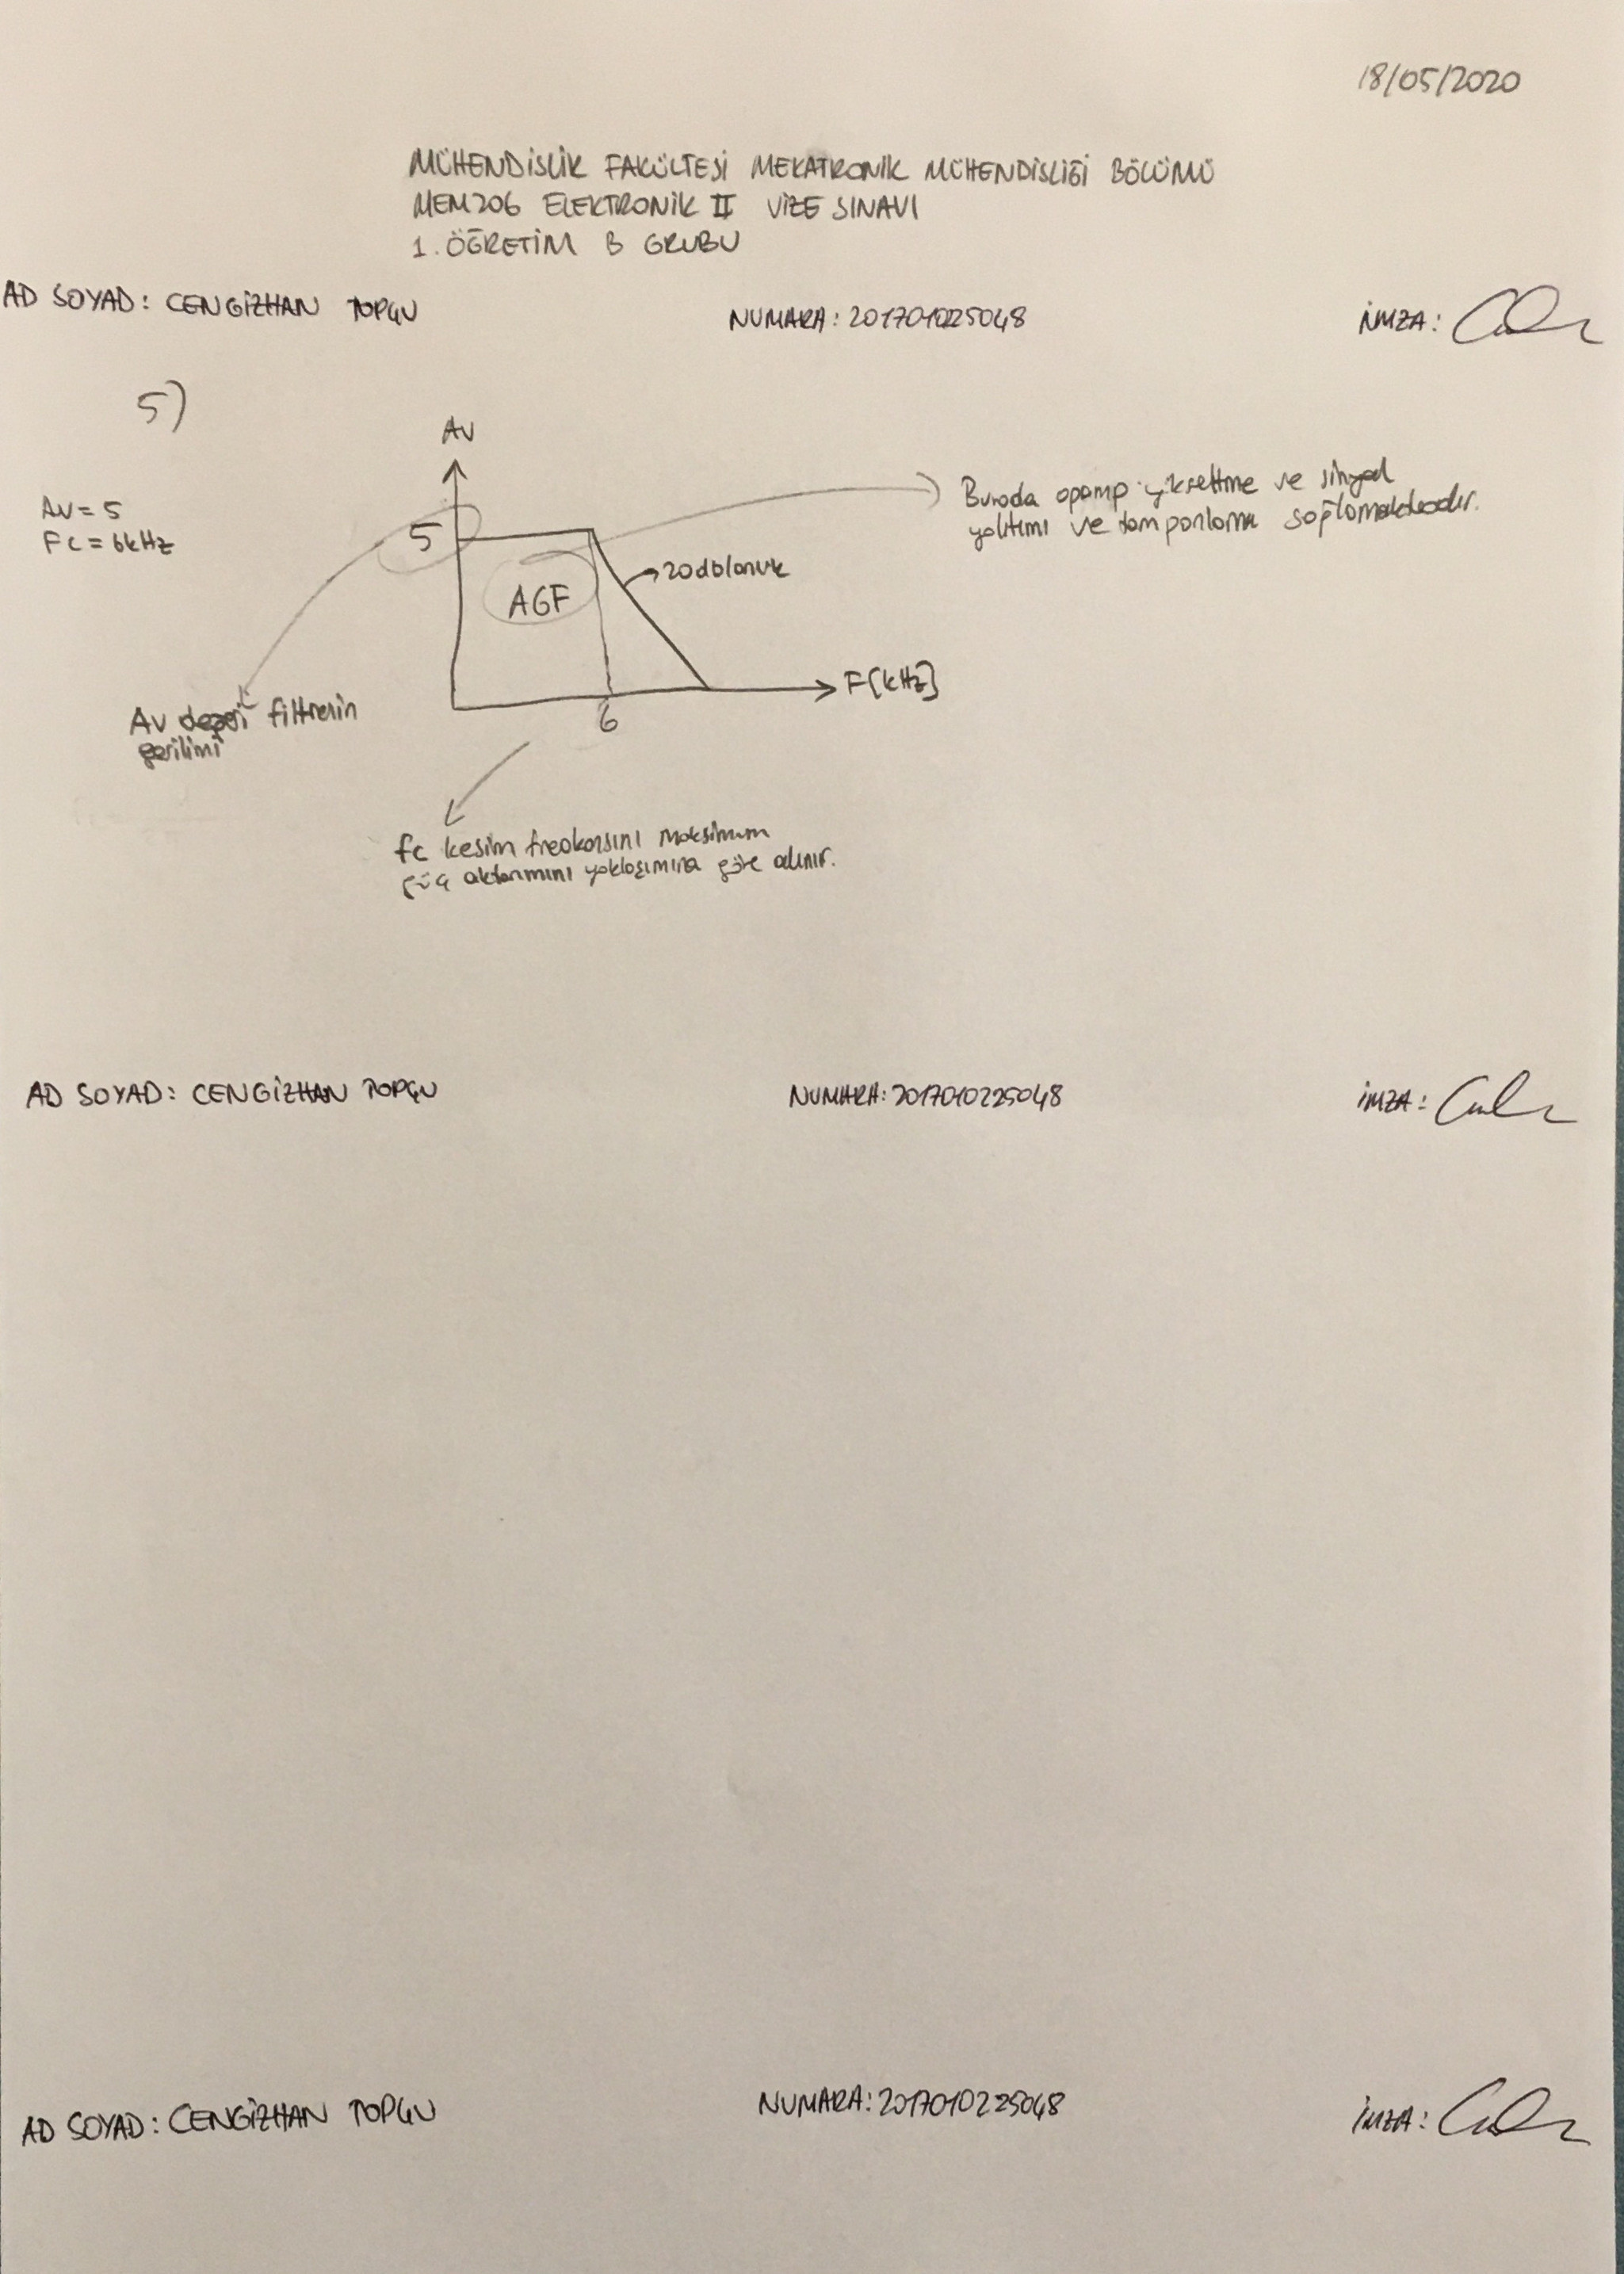 18/05/2020
MÜHENDİSLİK FAKÜLTESİ MEKATRONİK MÜHENDİSLİĞİ BÖLÜMÜ
MEM206 ELEKTRONİK II VİZE SINAVI
1. ÖĞRETİM B GRUBU
AD SOYAD: CENGİZHAN TOPÇU NUMARA: 2017010225048 İMZA:
5)
Av
Av = 5
Fc = 6kHz
5
AGF
20dblanık
Burada opamp yükseltme ve sinyal
yalıtımı ve tamponlama sağlamaktadır.
F[kHz]
6
Av değeri filtrenin
gerilimi
fc kesim freokansını maksimum
güç aktarımını yaklaşımına göre alınır.
AD SOYAD: CENGİZHAN TOPÇU NUMARA: 2017010225048 İMZA:
AD SOYAD: CENGİZHAN TOPÇU NUMARA: 2017010225048 İMZA: